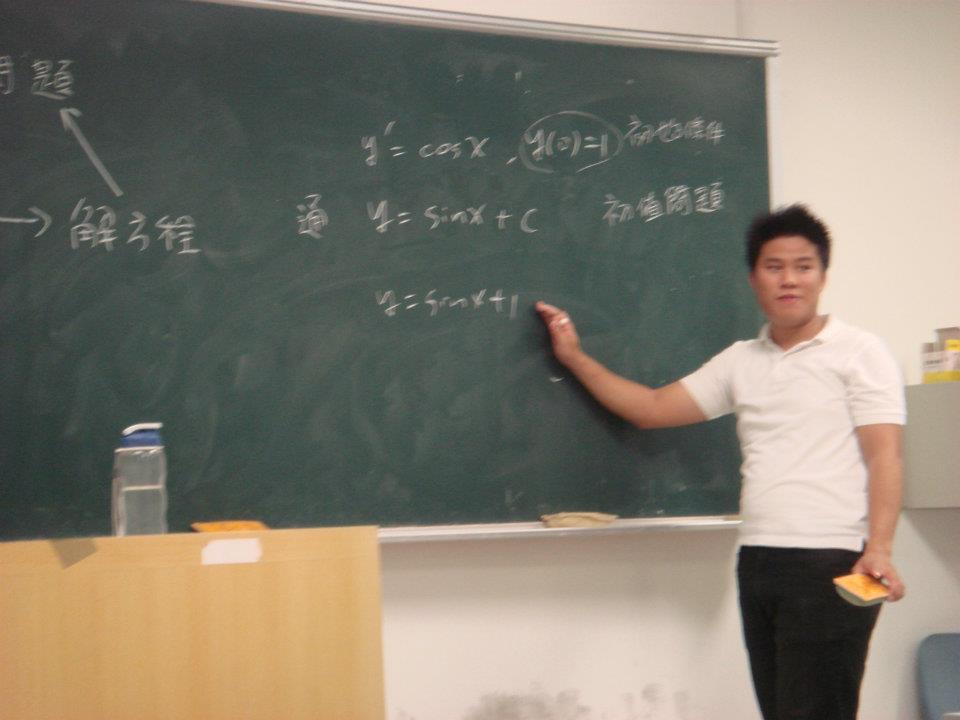 問題
y' = cosx , y(0)=1 初始條件
→ 解方程
通 y = sinx + c 初值問題
y = sinx + 1